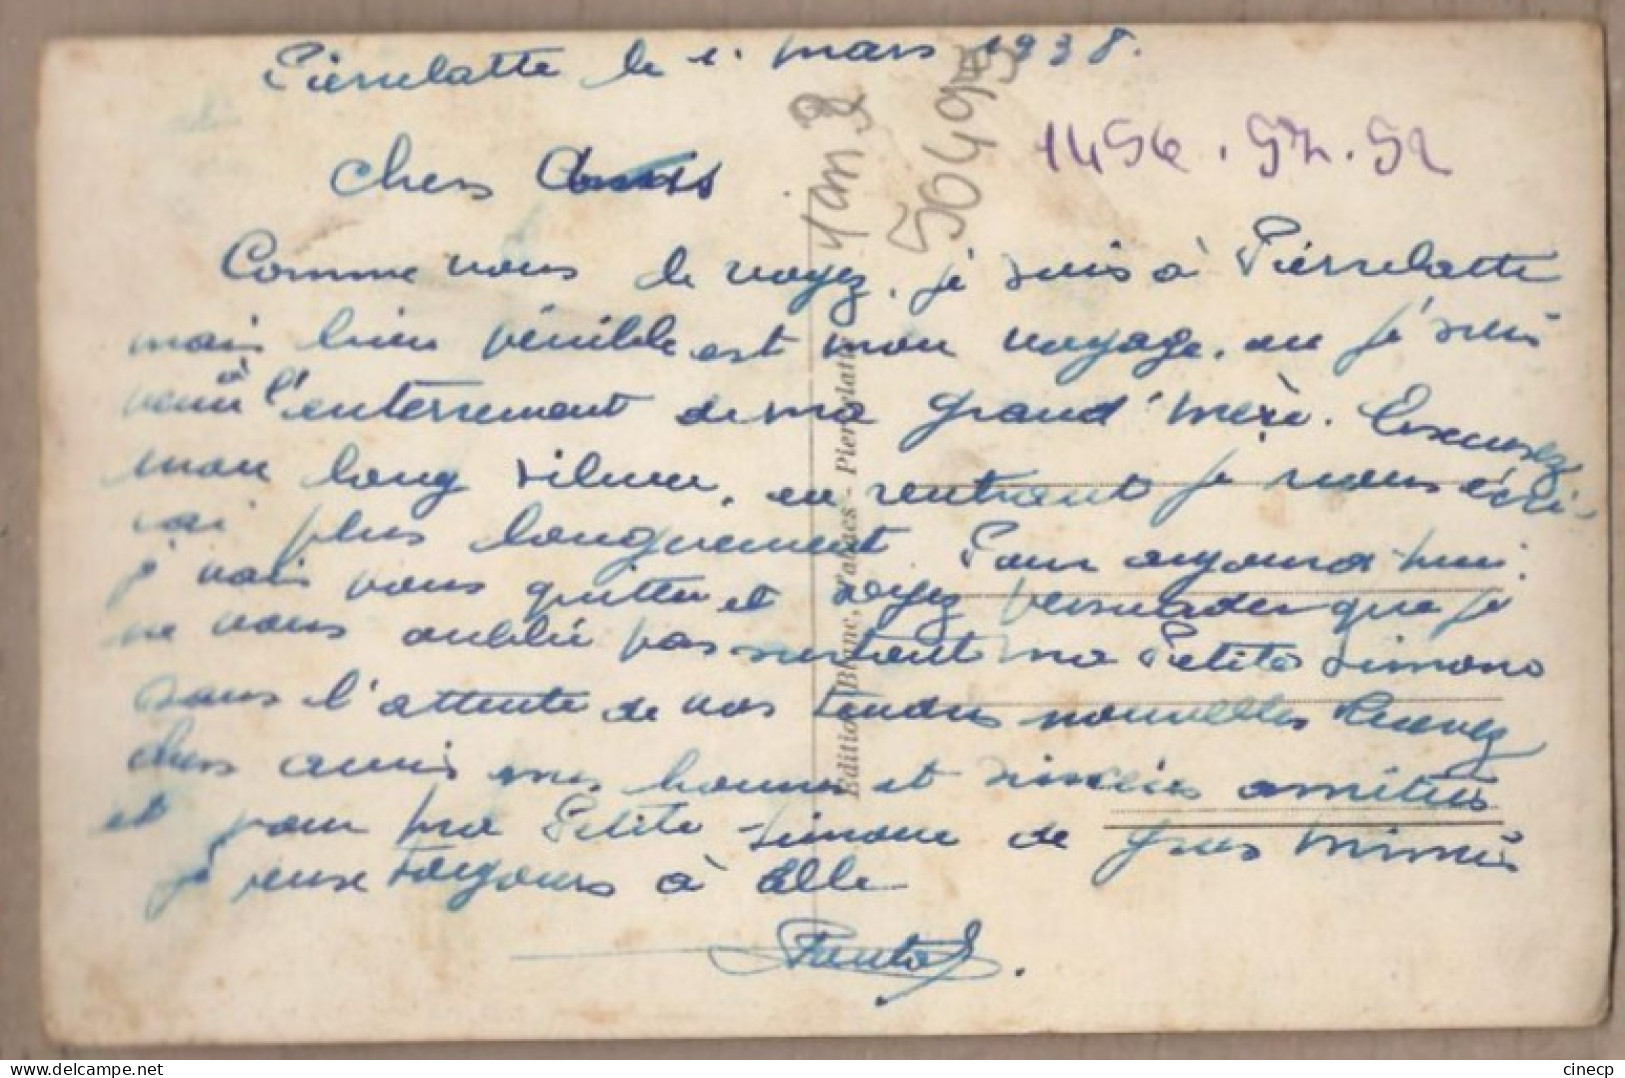 Pierrelatte le 1. mars 1938.
1456.57.52
chers Amis
Comme vous le voyez, je suis à Pierrelatte
mais bien pénible est mon voyage, ou je suis
venu à l'enterrement de ma grand'mère. Excusez
mon long silence, en rentrant je vous écri-
rai plus longuement Pour aujourd'hui.
je vais vous quitter et soyez persuader que je
ne vous oublie pas surtout ma Petite Simone
dans l'attente de vos tendres nouvelles Recevez
chers amis mes bonnes et sincères amitiés
et pour ma Petite Simone de gros mimis
je pense toujours à Elle
Editions Blanc, Tabacs - Pierrelatte
https://www.delcampe.net
cinecp